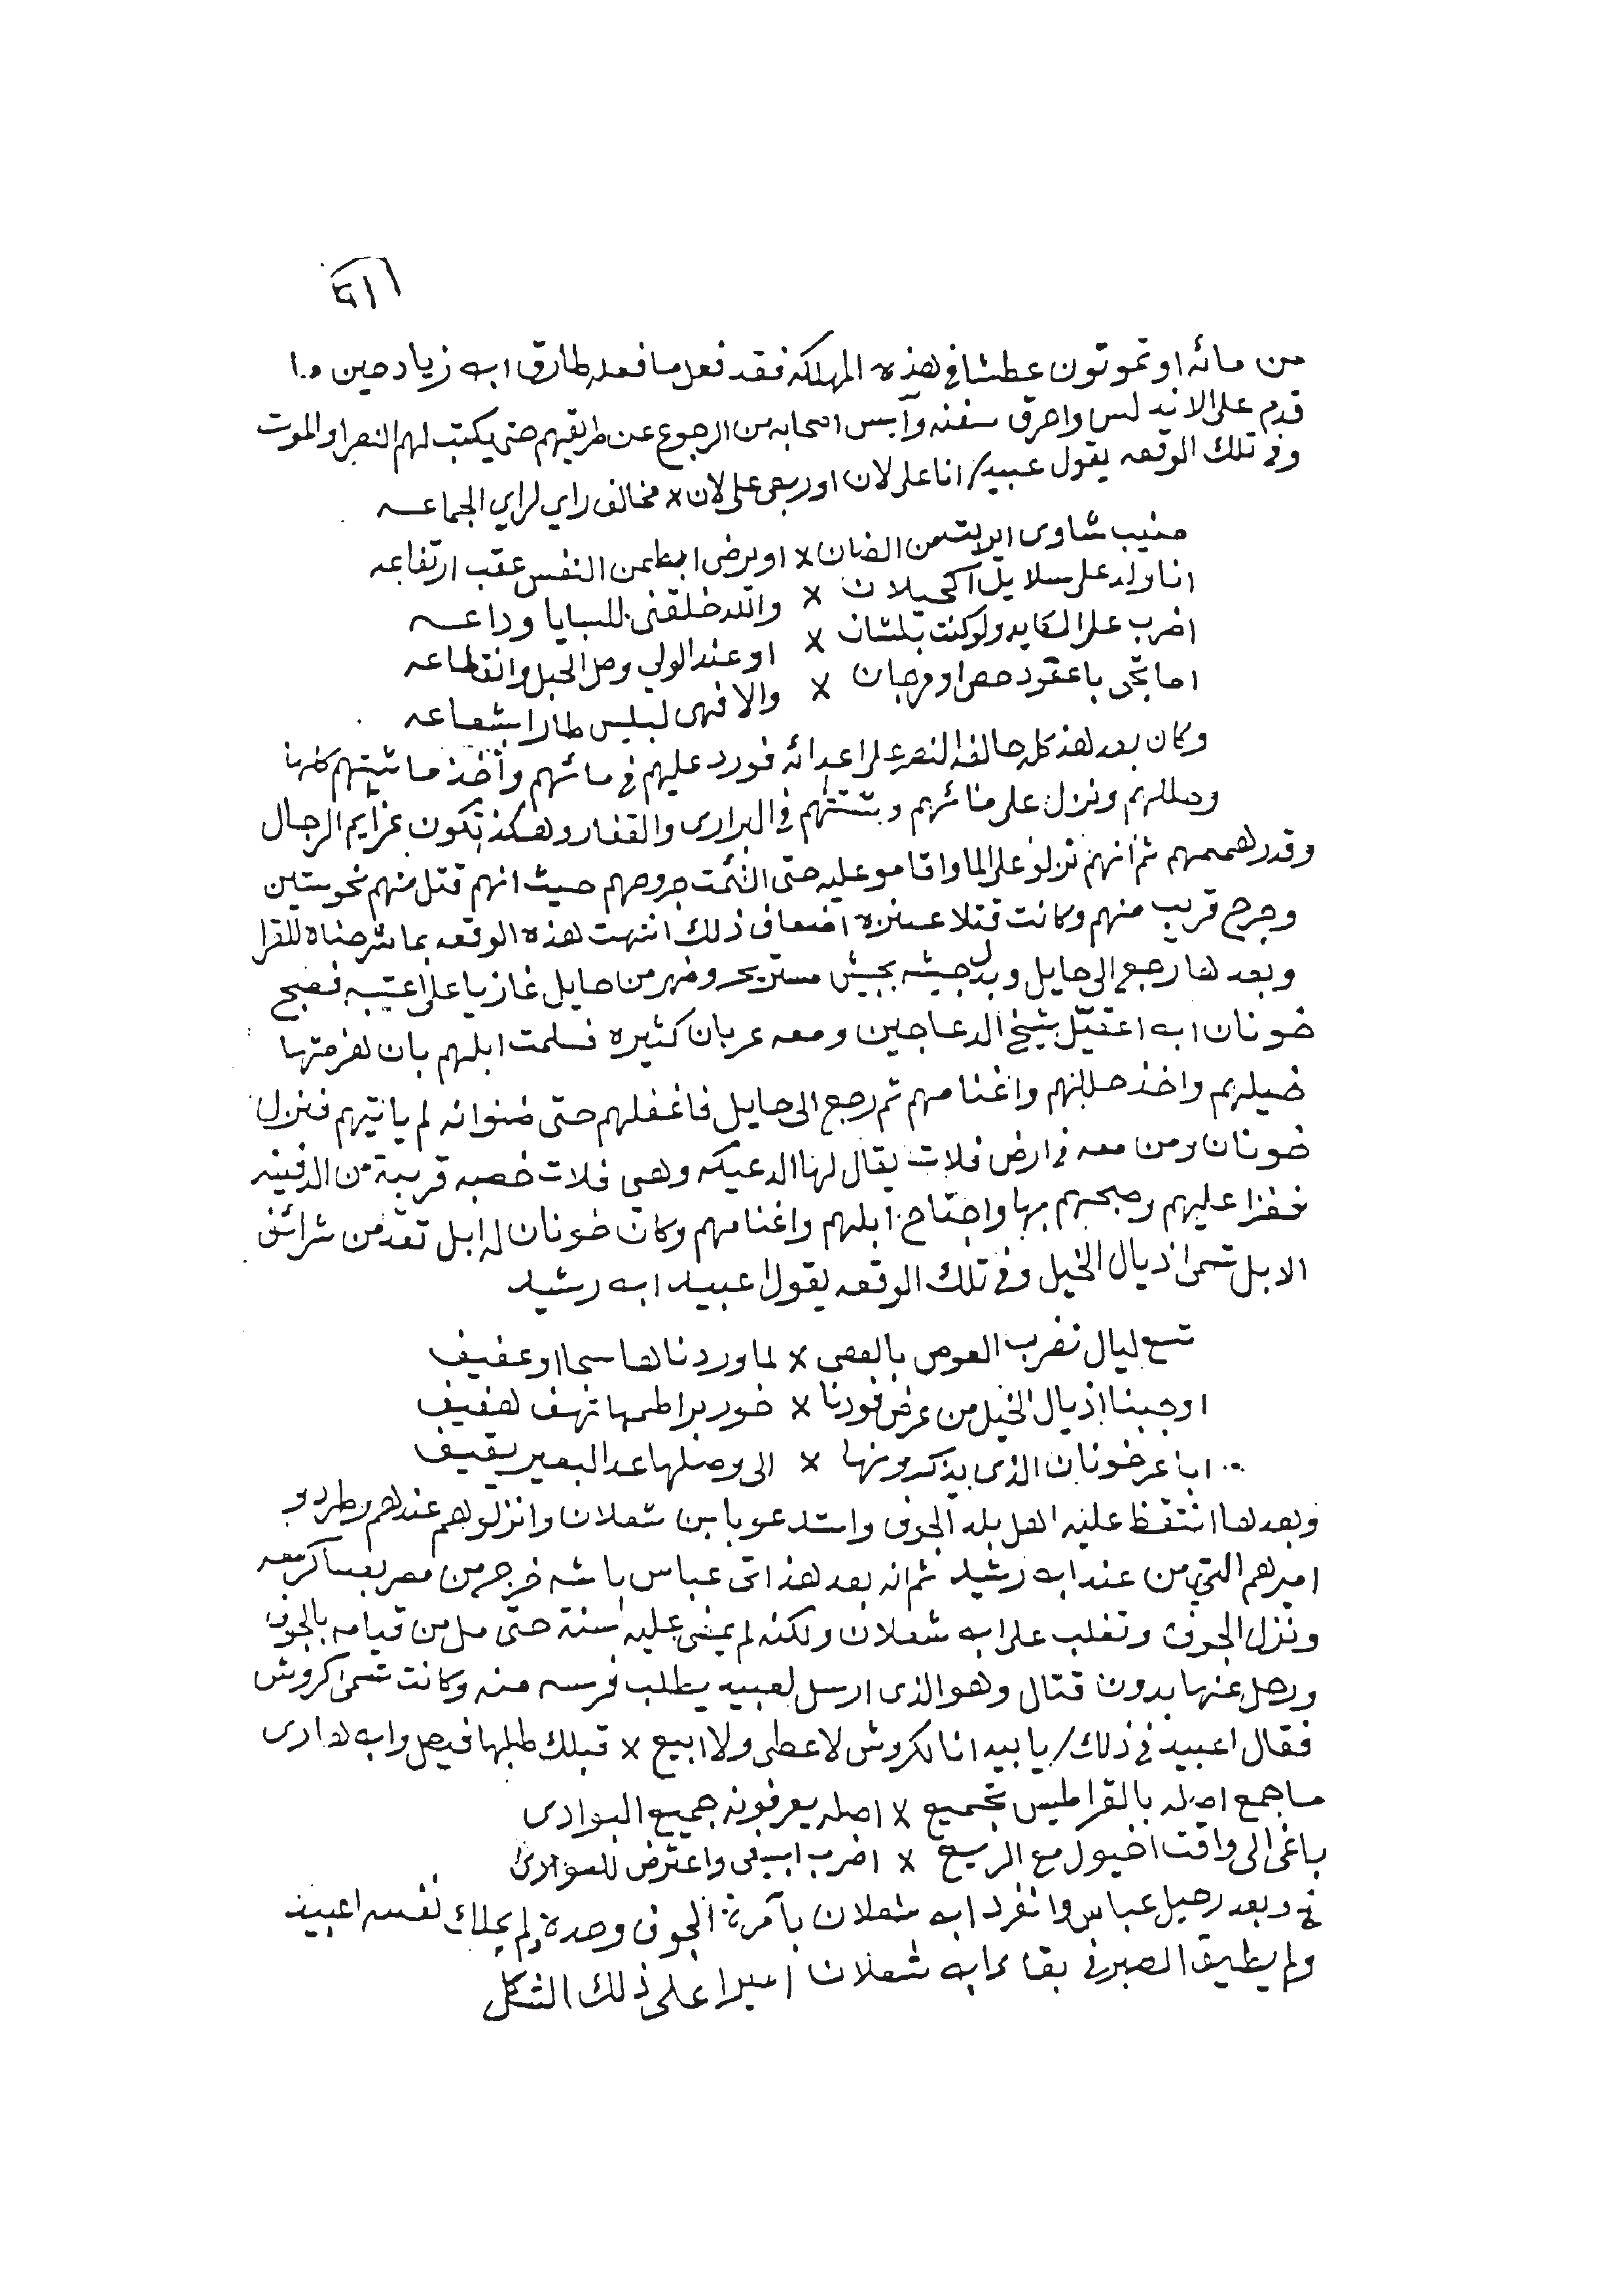 من مائه او تموتون عطشا في هذه المهلكه فقد فعل ما فعله طارق ابن زياد حين ما
قدم على الاندلس واحرق سفنه وآيس اصحابه من الرجوع عن طريقهم حتى يكتب لهم النصر او الموت
وفي تلك الوقعه يقول عبيد/ انا على لان اوربعي على لان × مخالف راي لراي الجماعه
منيب شاوي من الضان × او يرضى ابطمن النفس عقب ارتفاعه
انا ولد على سلايل اكحيلان × والله خلقني للسبايا وداعه
اضرب على الكايد ولو كنت بلشان × او عند الولي وصل الحبل وانقطاعه
اما تجي باعقود حص او مرجان × والا فهي لبليس طار ابشعاعه
وكان بعد هذ كله حالفه النصر على اعدائه فورد عليهم في مائهم وأخذ ماشيتهم كلها
وحللهم ونزل على مائهم وشتتهم في البراري والقفار وهكذ تكون عزايم الرجال
وقدر هممهم ثم انهم نزلو على الما واقامو عليه حتى التئمت جروحهم حيث انهم قتل منهم نحو ستين
وجرح قريب منهم وكانت قتلا عنزه اضعاف ذلك انتهت هذه الوقعه بما شرحناه للقرا
وبعد ها رجع الى حايل وبدل جيشه بجيش مستريح وضهر من حايل غازيا على اعتيبه فصبح
ضونان ابن اعقيّل شيخ الدعاجين ومعه عربان كثيره فسلمت ابلهم بان هزمتها
خيلهم واخذ حللهم واغنامهم ثم رجع الى حايل فاغفلهم حتى ضنوا انه لم ياتيهم فنزل
ضونان ومن معه في ارض فلات يقال لها الدعيكه وهي فلات خصبه قريبة من الدفينه
فغزا عليهم وصبحهم بها واجتاح ابلهم واغنامهم وكان ضونان له ابل تعد من شرائف
الابل تسمى اذيال الخيل وفي تلك الوقعه يقول اعبيد ابن رشيد
تسع ليال نضرب العوص بالعصى × لما وردنا ها سجا او عفيف
او جبنا اذيال الخيل من عرض فودنا × خور براطمها تهف هفيف
ابا عر ضونان الذي يذكرونها × الى وصلها عد البعير يقيف
وبعد ها انتقظ عليه اهل بلد الجوف واستدعو بابن شعلان وانزلوهم عندهم وطردو
اميرهم التي من عند ابن رشيد ثم انه بعد هذ اتى عباس باشه خرج من مصر بعساكر معه
ونزل الجوف وتغلب على ابن شعلان ولكنه لم يمضي عليه سنة حتى مل من قيامه بالجوف
ورحل عنها بدون قتال وهو الذي ارسل لعبيد يطلب فرسه منه وكانت تسمى كروش
فقال اعبيد في ذلك/ يا بيه انا لكروش لا عطي ولا ابيع × قبلك طلبها فيصل وابن هادي
ما جمع اصله بالقراطيس تجميع × اصله يعرفونه جميع البوادي
باغي الى واقت اخيول مع الريع × اضرب ابسيفي واعترض للعوادي
وبعد رحيل عباس وانفرد ابن شعلان بآمرة الجوف وحدة ولم يملك نفسه اعبيد
ولم يطيق الصبر في بقاء ابن شعلان اميرا على ذلك الشكل